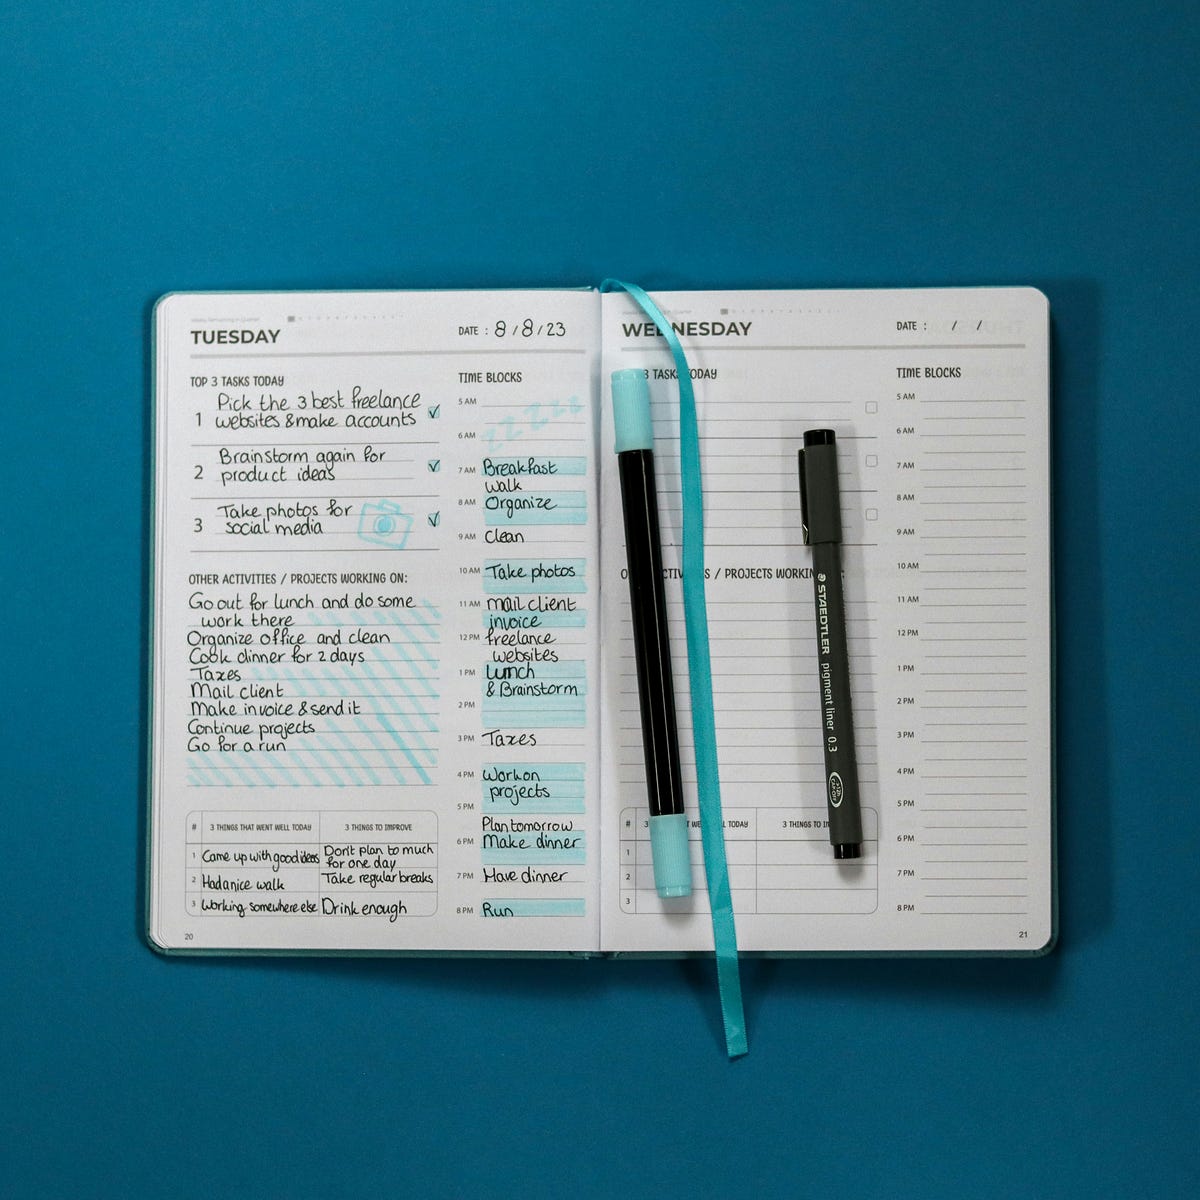 TUESDAY
DATE : 8/8/23
TOP 3 TASKS TODAY
1 Pick the 3 best freelance
websites & make accounts
2 Brainstorm again for
product ideas
3 Take photos for
social media
OTHER ACTIVITIES / PROJECTS WORKING ON:
Go out for lunch and do some
work there
Organize office and clean
Cook dinner for 2 days
Taxes
Mail client
Make invoice & send it
Continue projects
Go for a run
# 3 THINGS THAT WENT WELL TODAY 3 THINGS TO IMPROVE
1 Came up with good ideas Don't plan to much
for one day
2 Had a nice walk Take regular breaks
3 Working somewhere else Drink enough
20
TIME BLOCKS
5 AM
zzzzz
6 AM
7 AM Breakfast
walk
8 AM Organize
9 AM Clean
10 AM Take photos
11 AM mail client
invoice
12 PM freelance
websites
1 PM Lunch
& Brainstorm
2 PM
3 PM Taxes
4 PM Work on
projects
5 PM
Plan tomorrow
6 PM Make dinner
7 PM Have dinner
8 PM Run
WEDNESDAY
DATE : / /
3 TASKS TODAY
/ PROJECTS WORKING
# 3 TODAY 3 THINGS TO
1
2
3
TIME BLOCKS
5 AM
6 AM
7 AM
8 AM
9 AM
10 AM
11 AM
12 PM
1 PM
2 PM
3 PM
4 PM
5 PM
6 PM
7 PM
8 PM
21
STAEDTLER pigment liner 0.3